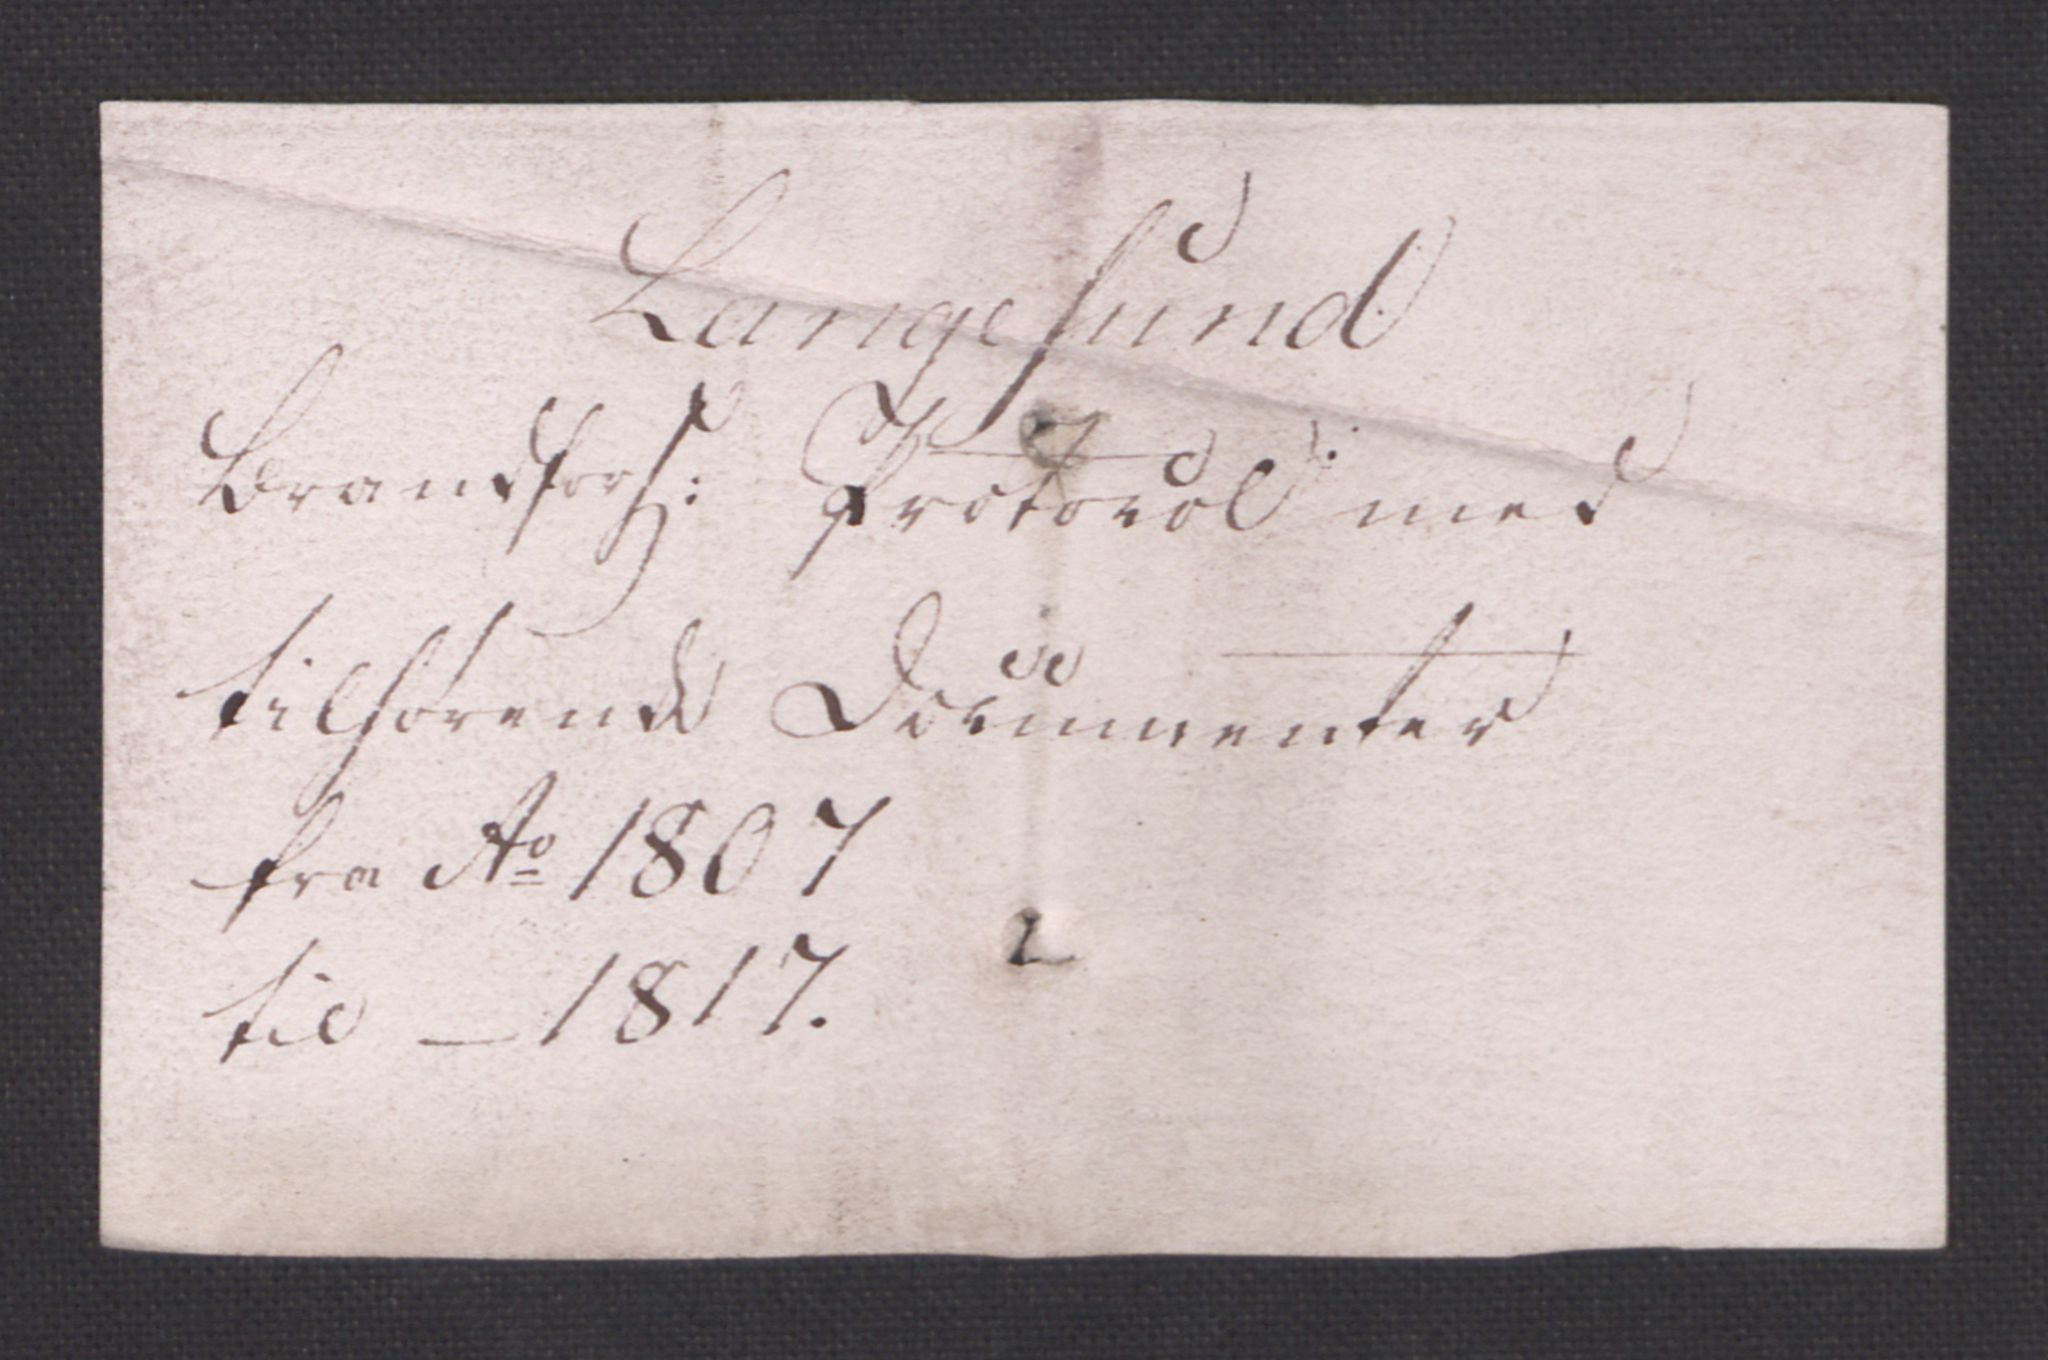 Langesund
Brandfors: Protocol med
tilhørende Documenter
fra Ao 1807
til – 1817.